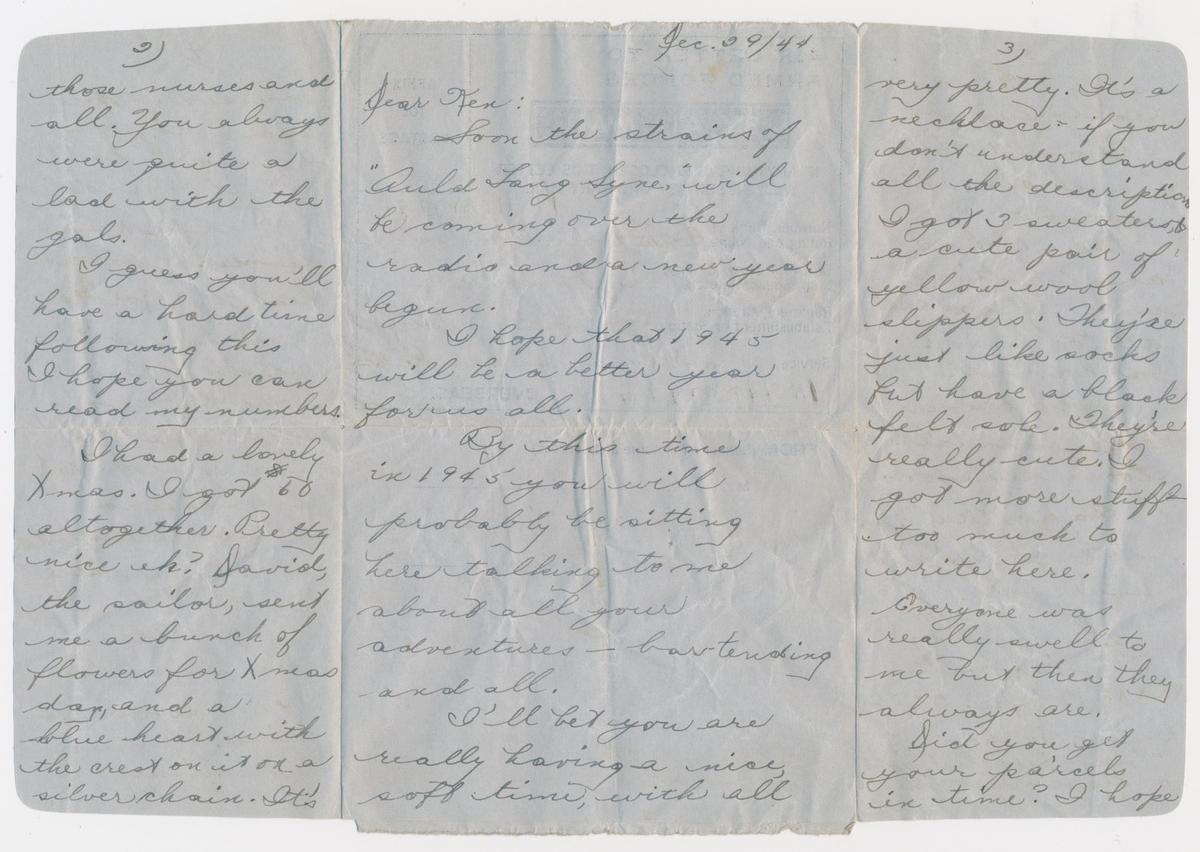 Dec. 29/44.
Dear Ken:
Soon the strains of
"Auld Lang Syne," will
be coming over the
radio and a new year
begun.
I hope that 1945
will be a better year
for us all.
By this time
in 1945 you will
probably be sitting
here talking to me
about all your
adventures — bar-tending
and all.
I'll bet you are
really having a nice,
soft time, with all
2)
those nurses and
all. You always
were quite a
lad with the
gals.
I guess you'll
have a hard time
following this
I hope you can
read my numbers.
I had a lovely
Xmas. I got $60
altogether. Pretty
nice eh? David,
the sailor, sent
me a bunch of
flowers for Xmas
day, and a
blue heart with
the crest on it on a
silver chain. It's
3)
very pretty. It's a
necklace - if you
don't understand
all the description
I got 3 sweaters, &
a cute pair of
yellow wool
slippers. They're
just like socks
but have a black
felt sole. They're
really cute. I
got more stuff
too much to
write here.
Everyone was
really swell to
me but then they
always are.
Did you get
your parcels
in time? I hope